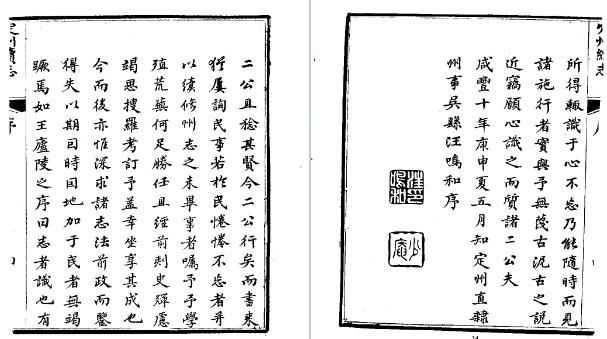 定州續志
序
二公且稔其賢今二公行矣而書來
猶屢詢民事若於民惓惓不忘者并
以續修州志之未畢事者囑予予學
殖荒蕪何足勝任且經前刺史殫慮
竭思搜羅考訂予蓋幸坐享其成也
今而後亦惟深求諸志法前政而鑒
得失以期因時因地加于民者無竭
蹶焉如王廬陵之序曰志者識也有
所得輒識于心不忘乃能隨時而見
諸施行者實與予無蔑古泥古之說
近竊願心識之而質諸二公夫
咸豐十年庚申夏五月知定州直隸
州事吳縣汪鳴和序
汪印鳴和